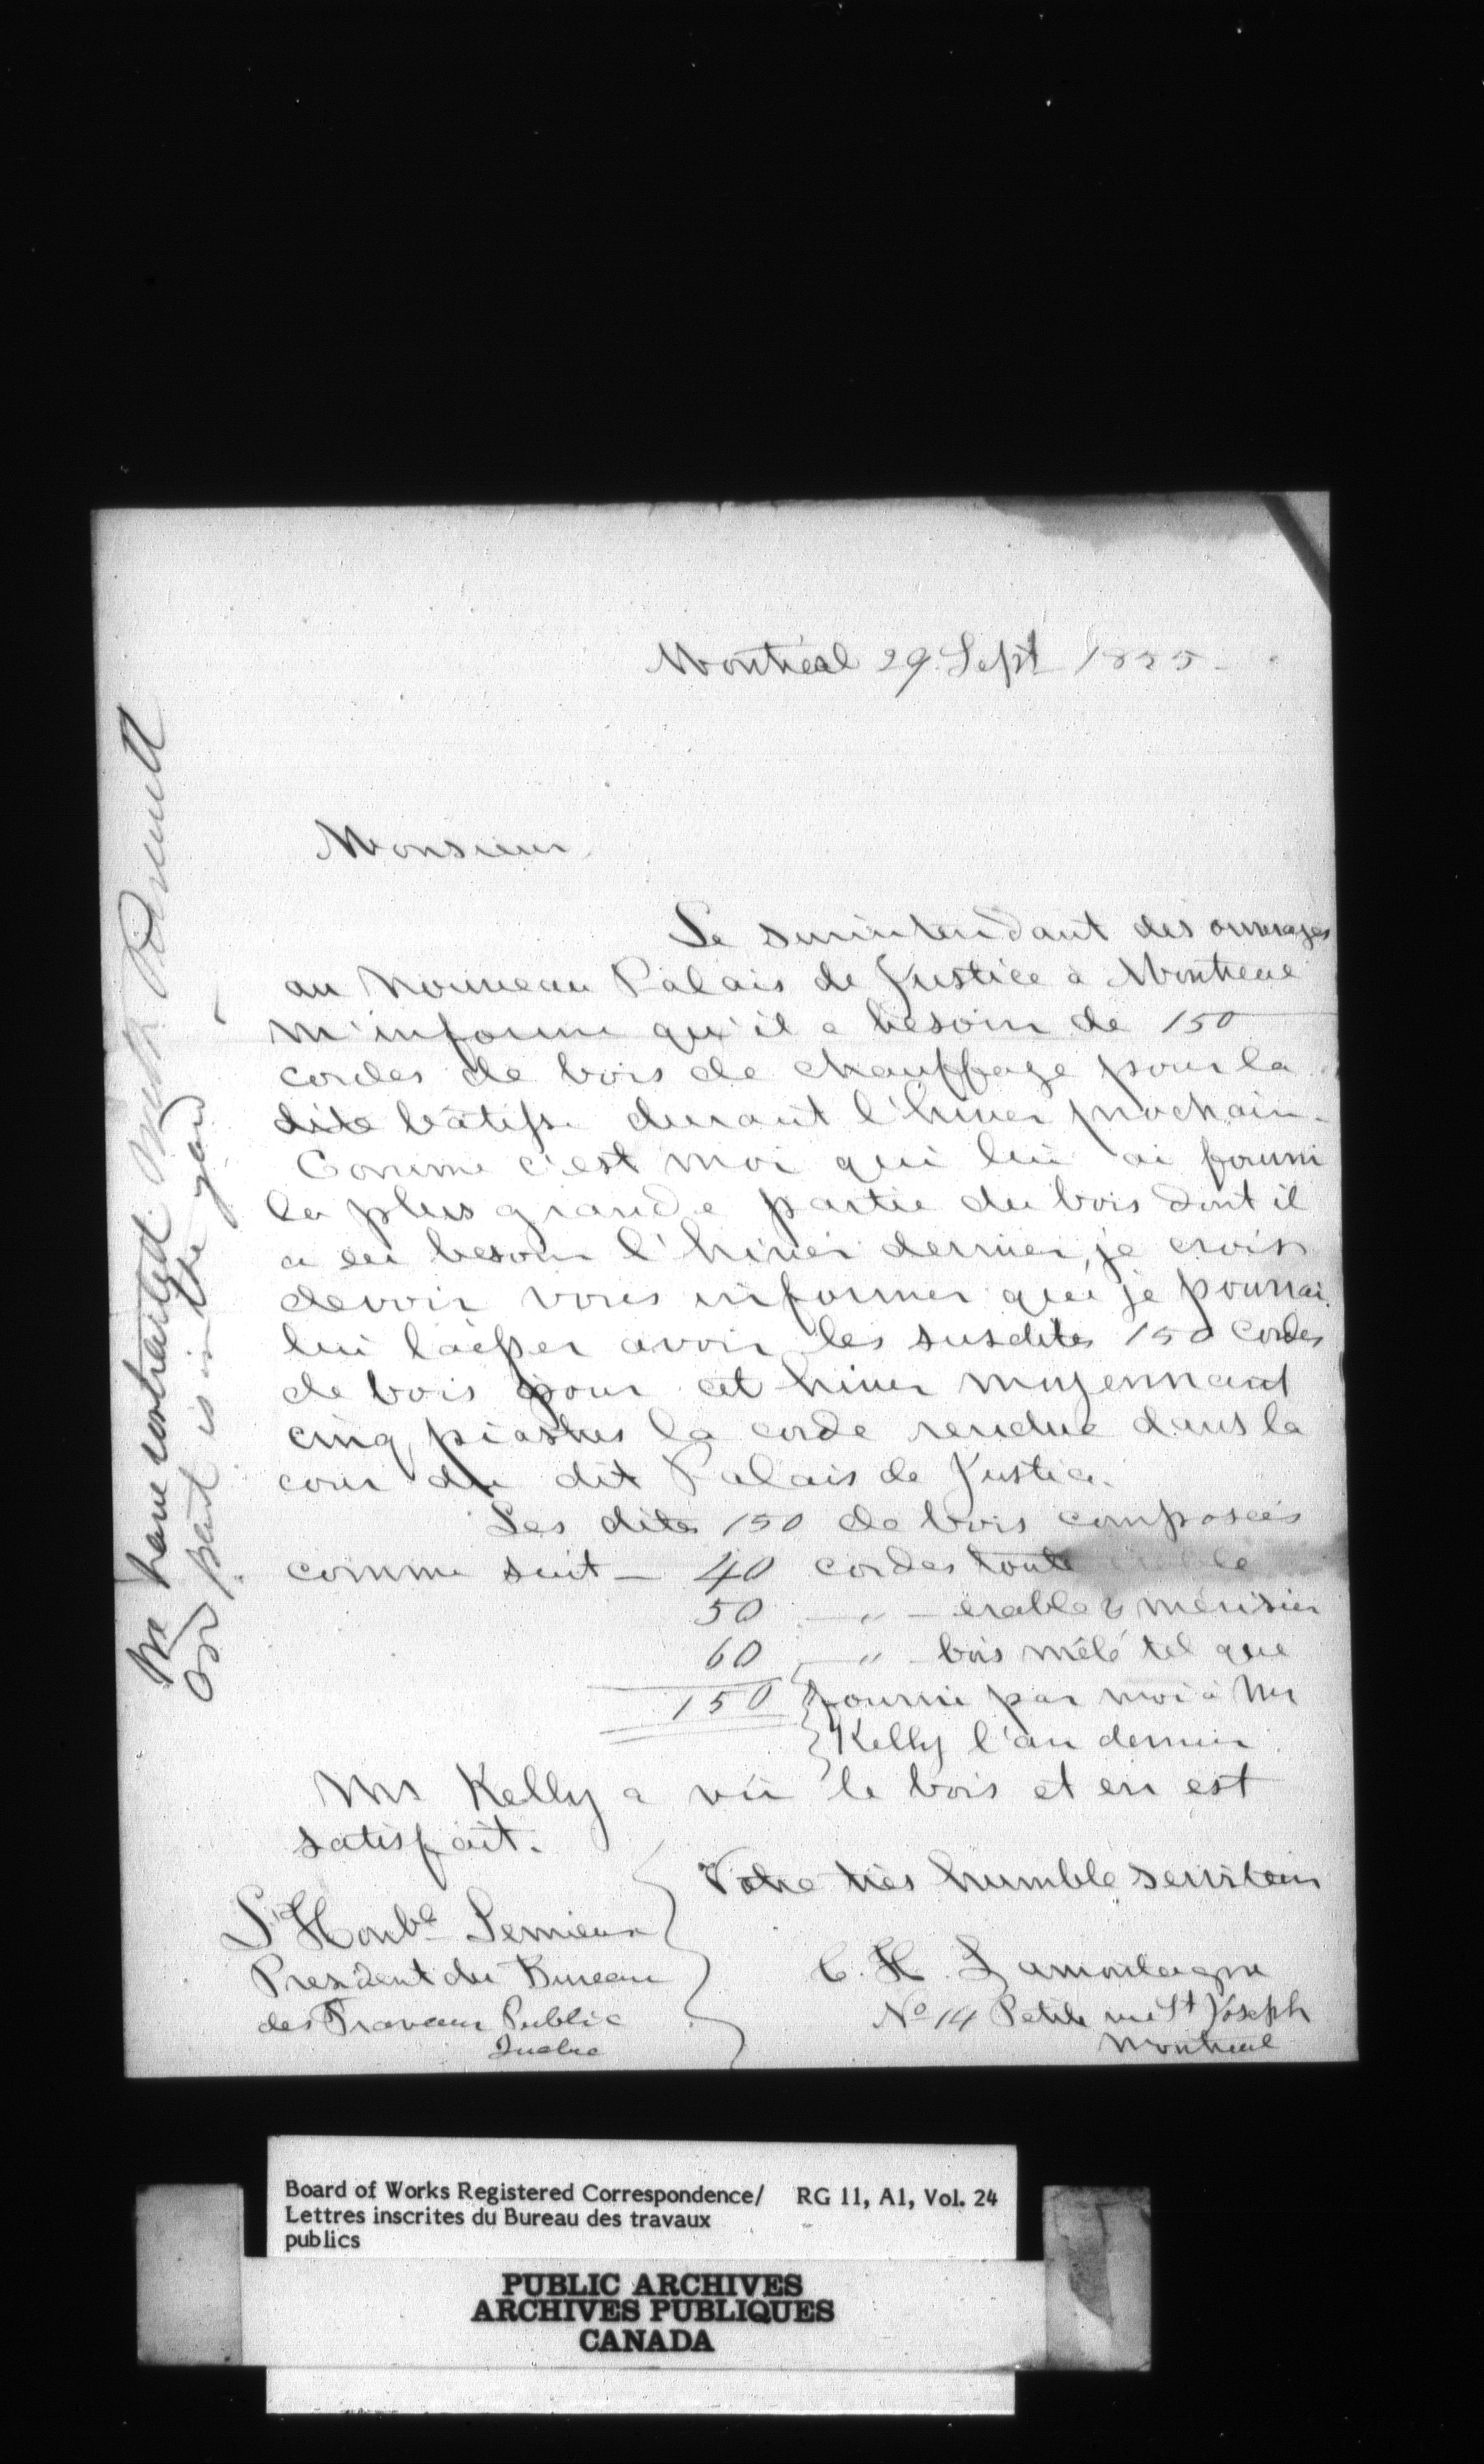 Montréal 29 Sept 1855
Monsieur
Le surintendant des ouvrages
au nouveau Palais de Justice à Montreal
m'informe qu'il a besoin de 150
cordes de bois de chauffage pour la
dite bâtisse durant l'hiver prochain.
Comme c'est moi qui lui ai fourni
la plus grande partie du bois dont il
a eu besoin l'hiver dernier, je crois
devoir vous informer que je pourrai
lui laisser avoir les susdites 150 cordes
de bois pour cet hiver moyennant
cinq piastres la corde rendue dans la
cour du dit Palais de Justice.
Les dites 150 de bois composées
comme suit — 40 cordes toute érable
50 — " — erable & mérisier
60 — " — bois mêlé tel que
150 fourni par moi à Mr
Kelly l'an dernier
Mr Kelly a vû le bois et en est
satisfait.
Votre très humble serviteur
L'Honble Lemieux
President du Bureau
des Travaux Public
Quebec
C. H. Lamontagne
No 14 Petite rue St Joseph
Montreal
We have contracted with
part is in the yard
Board of Works Registered Correspondence/ RG 11, A1, Vol. 24
Lettres inscrites du Bureau des travaux
publics
PUBLIC ARCHIVES
ARCHIVES PUBLIQUES
CANADA